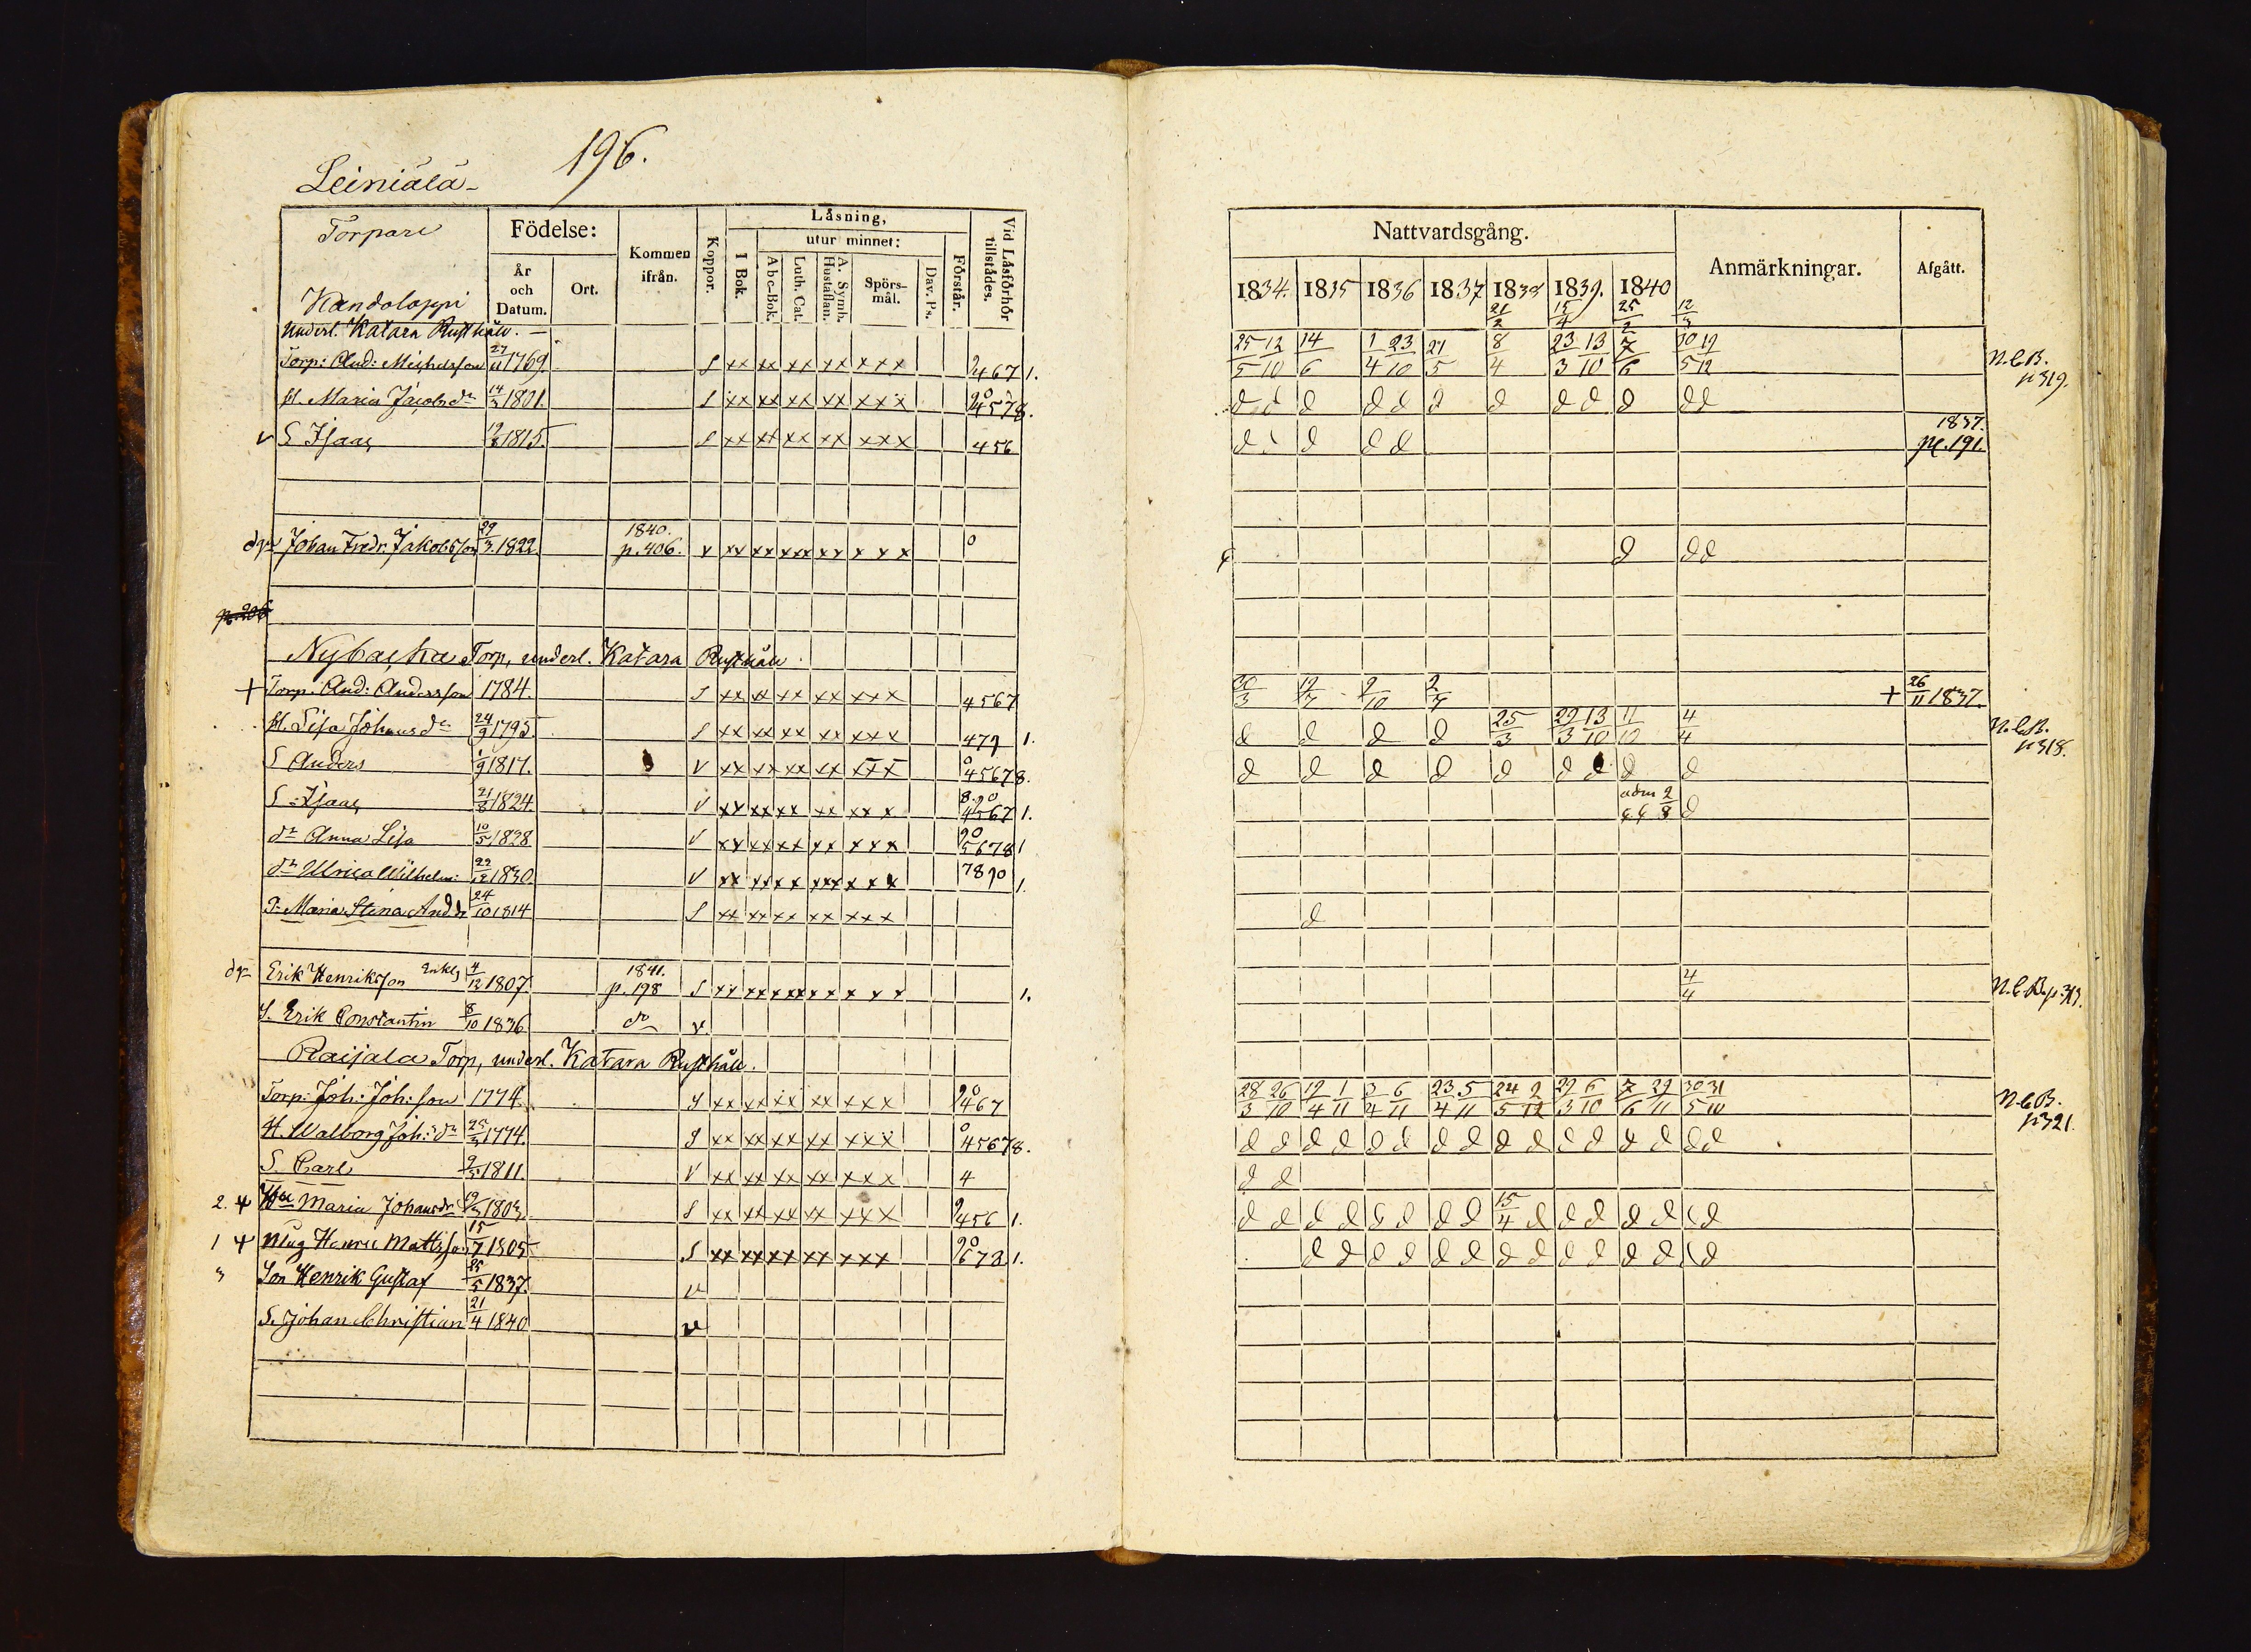 196.
Leiniälä
Torpare
Födelse:
Kommen ifrån.
Koppor.
Låsning,
utur minnet:
I Bok.
Abc-Bok.
Luth. Cat.
A. Symb. Hustaflan.
Spörsmål.
Dav. Ps.
Förstår.
Vid Låsförhör tillstädes.
År och Datum.
Ort.
Kandolappi
underl. Katara Rusthåll.
Torp: And: Michelsson 27/11 1769. S xx xx xx xx xxx 467 1.
H. Maria Jacobsdr 14/3 1801. S xx xx xx xx xxx 4578.
v S Isaac 1815. S xx xx xx xx xxx 456
Johan Fredr: Jakobsson 29/3 1822. 1840. p. 406. v xx xx xxx xx x x x 0
p. 206
Nybacka Torp, underl. Katara Rusthåll
+ Torp. And: Andersson 1784. S xx xx xx xx xxx 4567
H. Lisa Johansdr 24/9 1795. S xx xx xx xx xxx 479 1.
S Anders 1/9 1817. V xx xx xx xx xxx 45678.
S. Isaac 21/8 1824. V xx xx xx xx xxx 4567 1.
dr Anna Lisa 10/5 1828. V xx xx xx xx xxx 5678 1
dr Ulrica Wilhelm: 22/12 1830. V xx xx xx xxx xxx 7890 1.
P. Maria Stina Andr 24/10 1814 S xx xx xx xx xxx
Erik Henriksson Enkl. 4/12 1807. 1841. p. 198 S xx xx xxx xx x x x 1.
S. Erik Constantin 8/10 1836 do v.
Raijala Torp, underl. Katara Rusthåll.
Torp: Joh: Joh:son 1774. S xx xx xx xx xxx 467
H. Walborg Joh:sdr 25/3 1774. S xx xx xx xx xxx 45678.
S. Carl 1811. V xx xx xx xx xxx 4
2. Maria Johansdr 19/3 1803. S xx xx xx xx xxx 456 1.
1 Måg Henric Mattsson 15/7 1805 S xx xx xx xx xxx 678 1.
3 Son Henrik Gustaf 25/5 1837. v
S. Johan Christian 21/4 1840 v
Nattvardsgång.
Anmärkningar.
Afgått.
1834. 1835 1836 1837 1838 1839. 1840
21/2 15/4 25/2 12/3
25/5 12/10 14/6 1/4 23/10 21/5 8/4 23/3 13/10 7/6 30/5 19/12 N.C.B. p 319.
d d d d d d d d d d d d
d d d d d 1837. pl. 191.
d d d
30/3 12/7 9/10 2/7 + 26/11 1837.
d d d d 25/3 29/3 13/10 11/12 4/4 N.C.B. p 318.
d d d d d d d d d
adm 2/8 d
d
4/4 N.C.B. p. 313.
28/3 26/10 12/4 1/11 3/4 6/11 23/4 5/11 24/5 2/12 29/3 6/10 7/6 29/11 30/5 31/10 N.C.B. p 321.
d d d d d d d d d d d d d d d d
d d
d d d d d d d d 15/4 d d d d d d d
d d d d d d d d d d d d d d